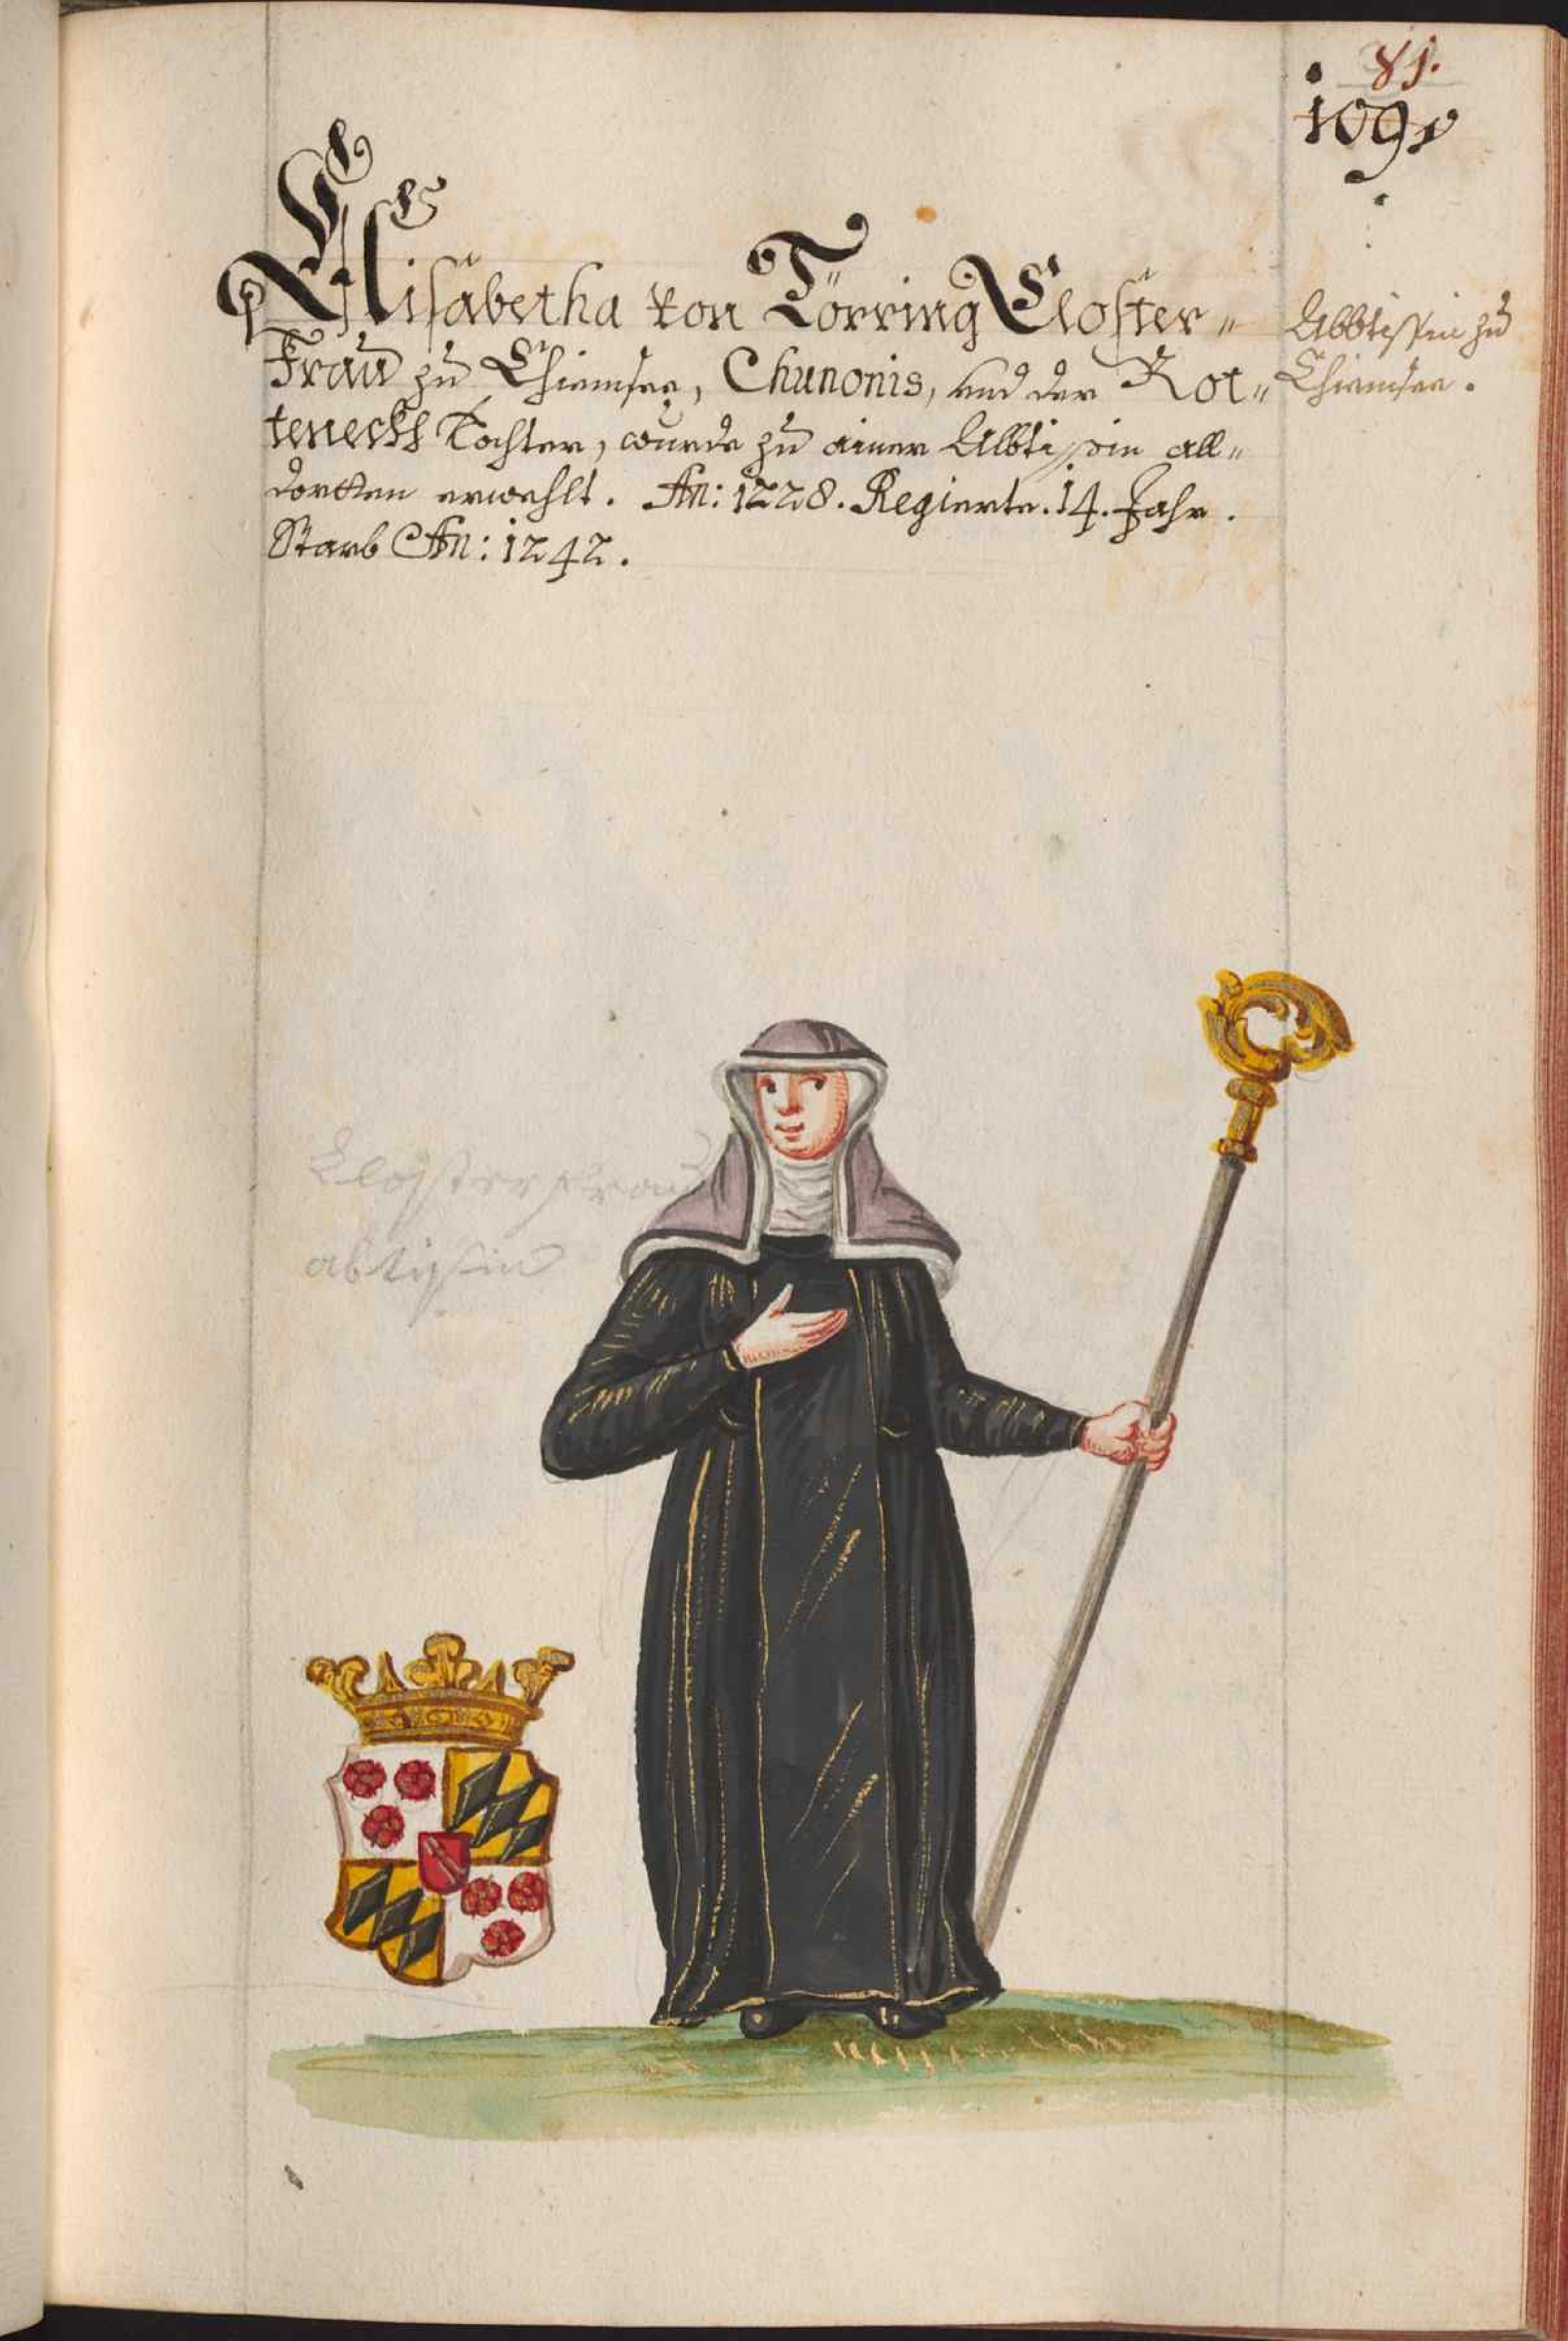 81.
109
Elisabetha von Törring Closter„
Frau zu Chiemsee, Chunonis, und der Rot„
tenecks Tochter, wurde zu einer Abbtissin all„
dortten erwehlt. An: 1228. Regierte. 14. Jahr.
Starb An: 1242.
Abbtissin zu
Chiemsee.
Closter Frau
abtissin